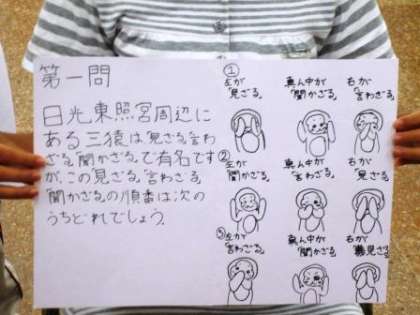 第一問
日光東照宮周辺に
ある三猿は「見ざる」「言わ
ざる」「聞かざる」で有名です
が、この「見ざる」「言わざる」
「聞かざる」の順番は次の
うちどれでしょう。
①
左が 真ん中が 右が
「見ざる」 「聞かざる」 「言わざる」
②
左が 真ん中が 右が
「聞かざる」 「言わざる」 「見ざる」
③
左が 真ん中が 右が
「言わざる」 「聞かざる」 「見ざる」